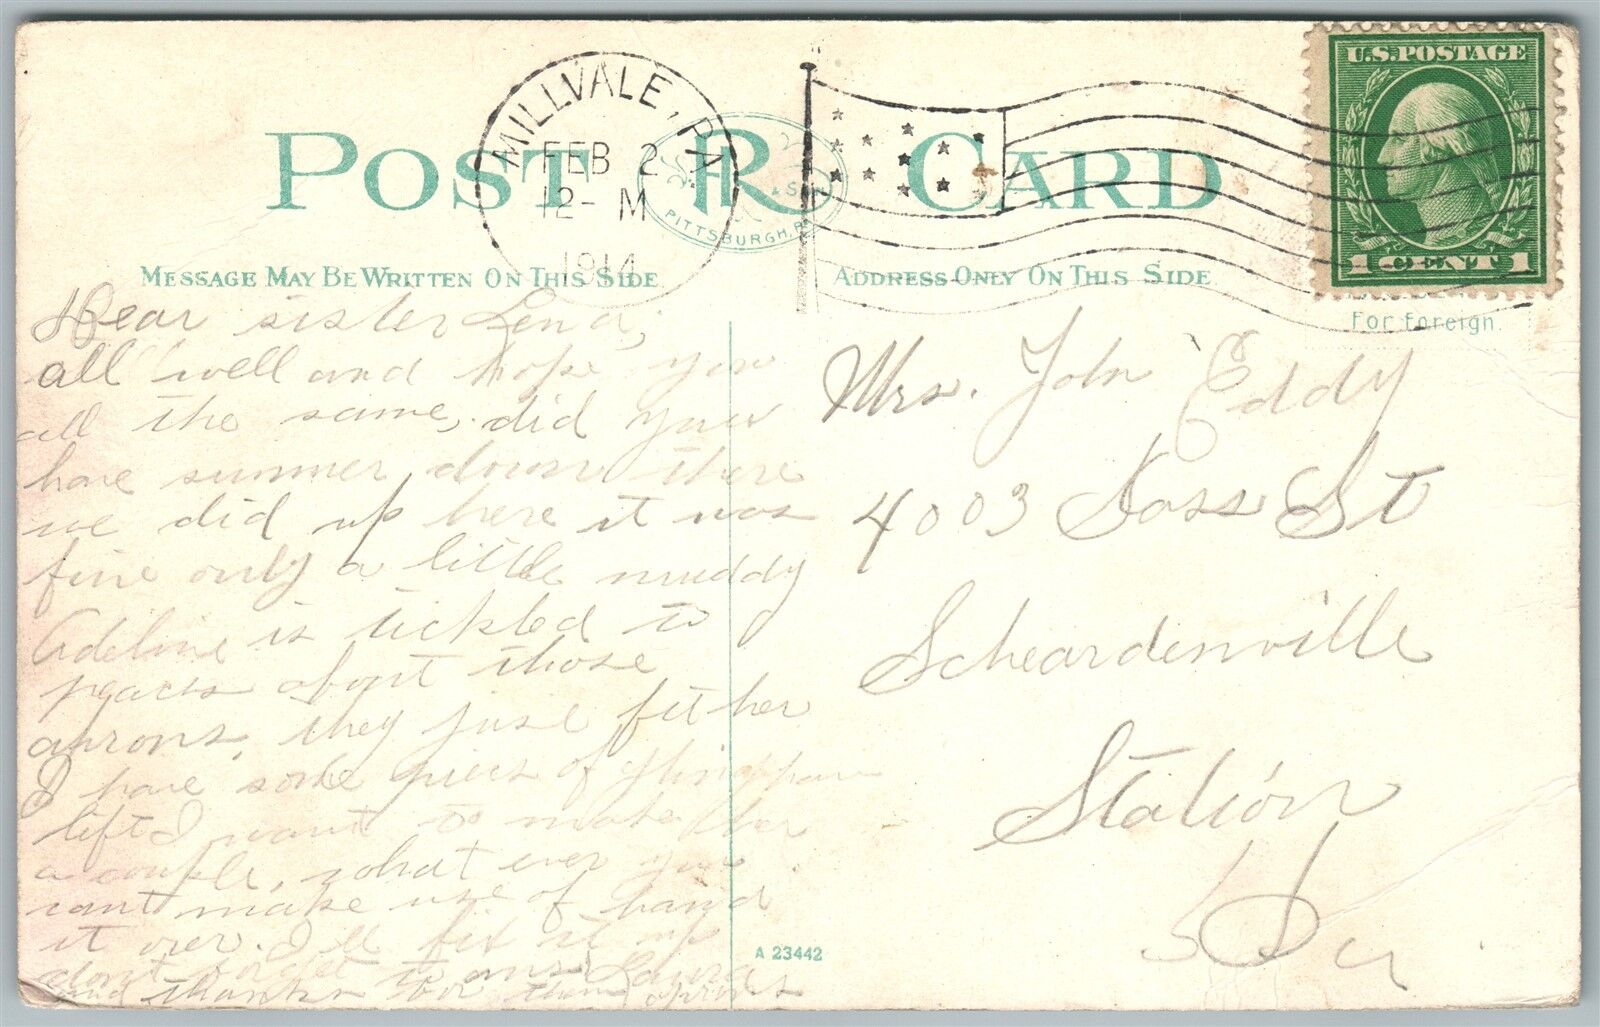 U.S.POSTAGE
1 CENT 1
MILLVALE, PA
FEB 2
12- M
1914
POST CARD
R & S
PITTSBURGH, PA
MESSAGE MAY BE WRITTEN ON THIS SIDE
ADDRESS ONLY ON THIS SIDE
For foreign
Dear sister Lena,
all well and hope you
all the same, did you
have summer down there
we did up here it was
fine only a little muddy
Adeline is tickled to
peaces about those
aprons, they just fit her
I have some pieces of
left I want to make her
a couple, what ever you
cant make use of hand
it over. I'll fix it up
dont forget to ans Laura
and thanks for them
Mrs. John Eddy
4003 St
Scheardenville
Station
A 23442